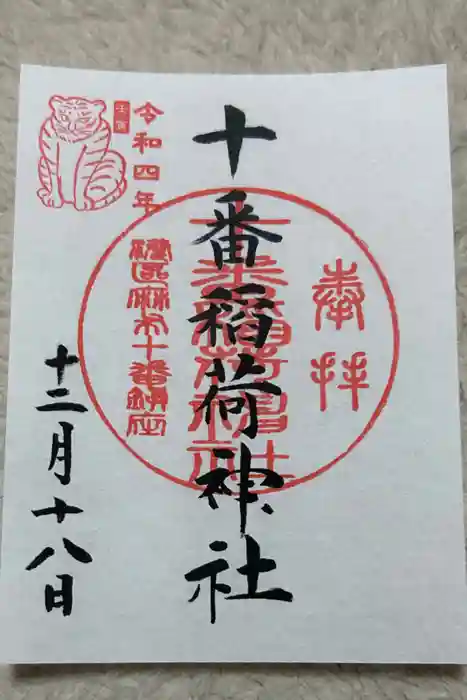 奉拝
十番稲荷神社
十番稲荷神社
港区麻布十番鎮座
令和四年
壬寅
十二月十八日